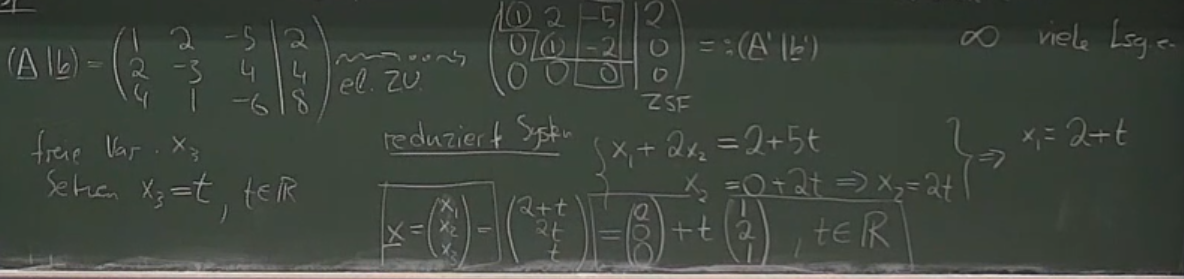 (A|b) = (1 2 -5 | 2; 2 -3 4 | 4; 4 1 -6 | 8) el. ZU. (1 2 -5 | 2; 0 1 -2 | 0; 0 0 0 | 0) =: (A'|b') ∞ viele Lsg.en
ZSF
freie Var. x₃
Setzen x₃ = t, t∈ℝ
reduziert System
x₁ + 2x₂ = 2+5t
x₂ = 0+2t ⇒ x₂ = 2t
⇒ x₁ = 2+t
x = (x₁; x₂; x₃) = (2+t; 2t; t) = (2; 0; 0) + t (1; 2; 1), t∈ℝ